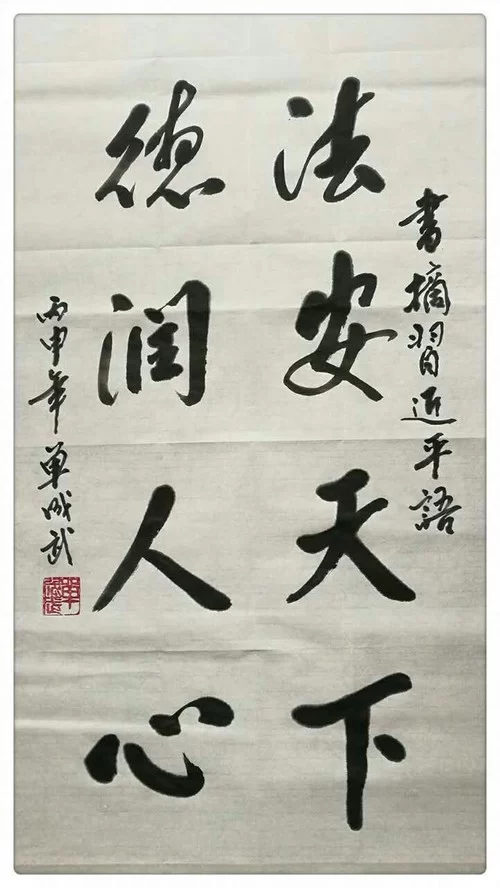 書摘習近平語
法安天下
德润人心
丙申年单成武